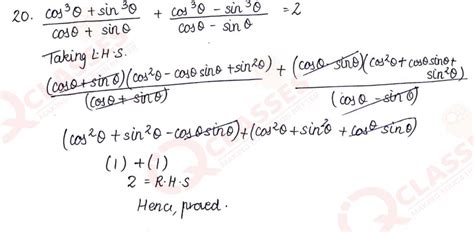 20. cos³θ + sin³θ / cosθ + sinθ + cos³θ - sin³θ / cosθ - sinθ = 2
Taking L.H.S.
(cosθ + sinθ)(cos²θ - cosθ sinθ + sin²θ) / (cosθ + sinθ) + (cosθ - sinθ)(cos²θ + cosθ sinθ + sin²θ) / (cosθ - sinθ)
(cos²θ + sin²θ - cosθ sinθ) + (cos²θ + sin²θ + cosθ sinθ)
(1) + (1)
2 = R.H.S
Hence, proved.
QCLASSES